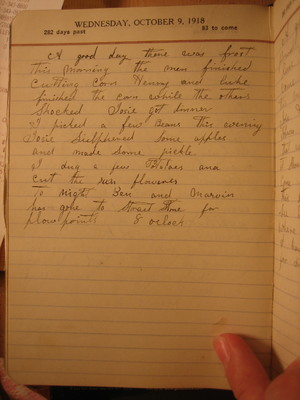 WEDNESDAY, OCTOBER 9, 1918
282 days past 83 to come
A good day there was frost
this morning the men finished
Cutting Corn Henny and Luke
finished the corn while the others
Shocked Josie got dinner
I picked a few Beans this evening
Josie some apples
and made some pickle
I dug a few Potatoes and
cut the sun flowers
To night Ben and Marvin
has gone to Stone for
plow points 8 oclock